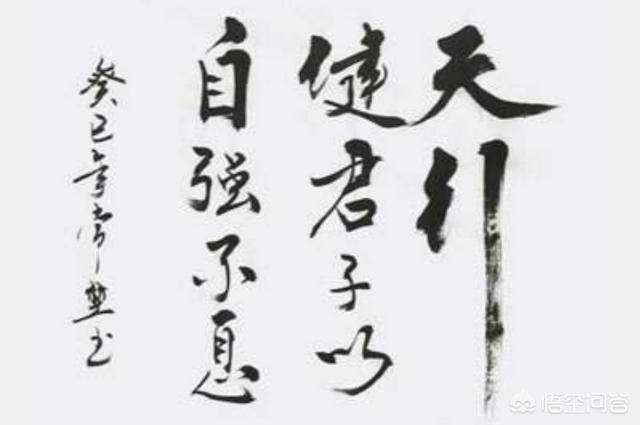 天行
健君子以
自强不息
癸巳年常楚书
悟空问答